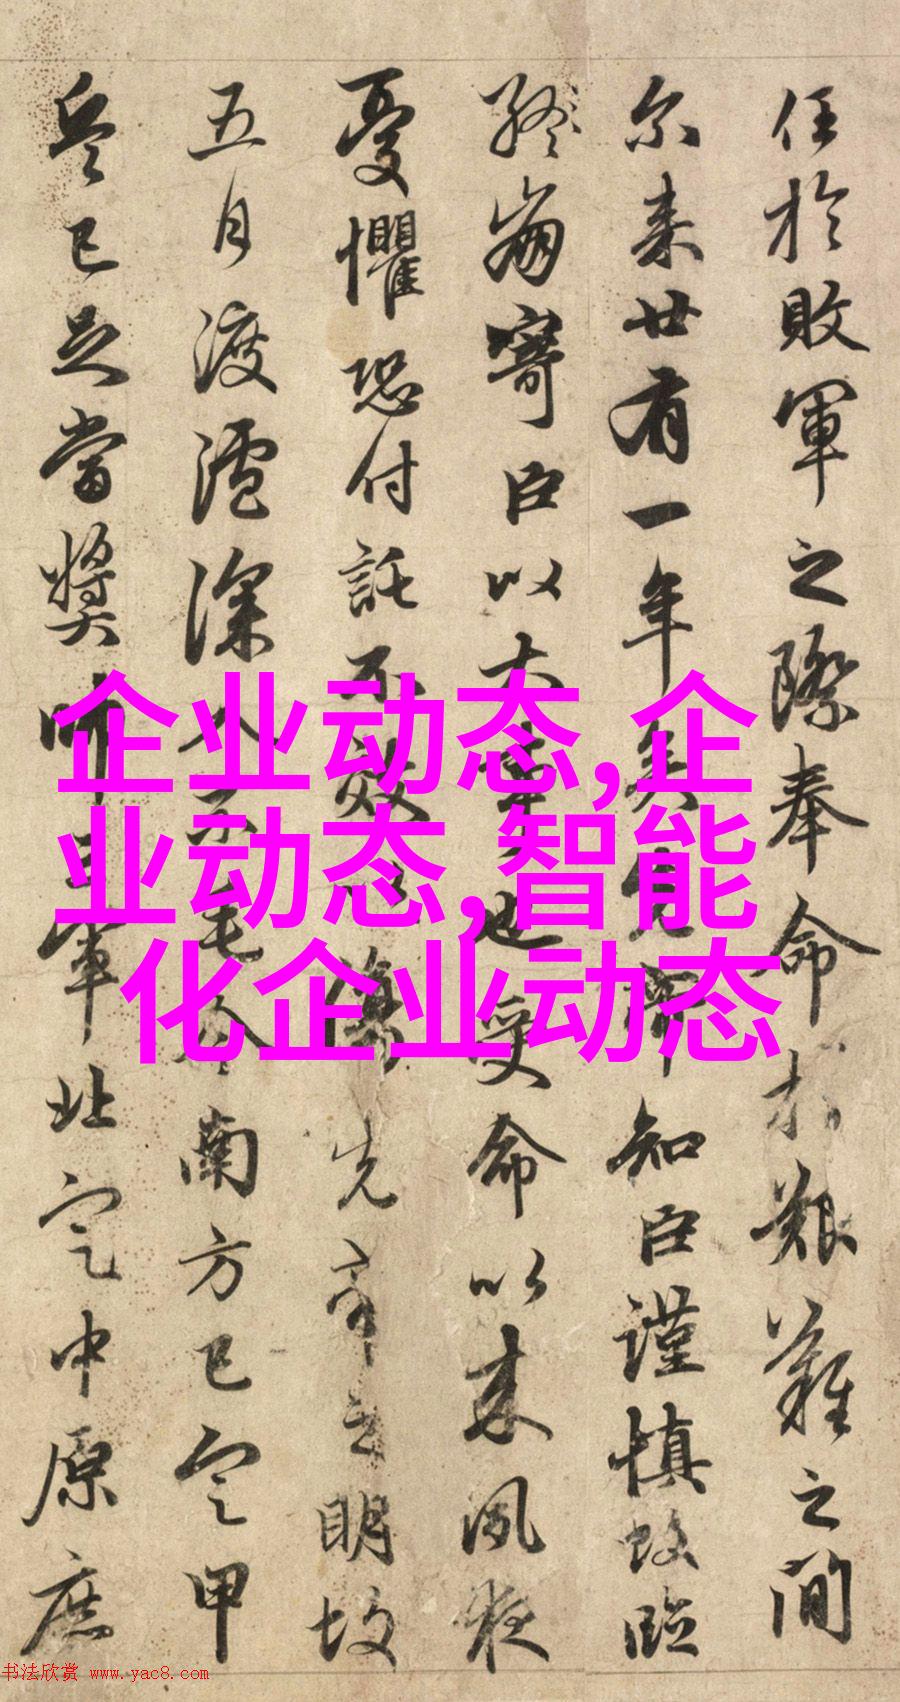 任於敗軍之際奉命於艱難之間
尔来廿有一年矣先帝知臣謹慎故臨
終崩寄臣以大事也受命以来夙夜
憂懼恐付託不效以傷先帝之明故
五月渡瀘深入不毛今南方已定甲
兵已足當獎帥三軍北定中原庶
企业动态,企
业动态,智能
化企业动态
书法欣赏 www.yac8.com